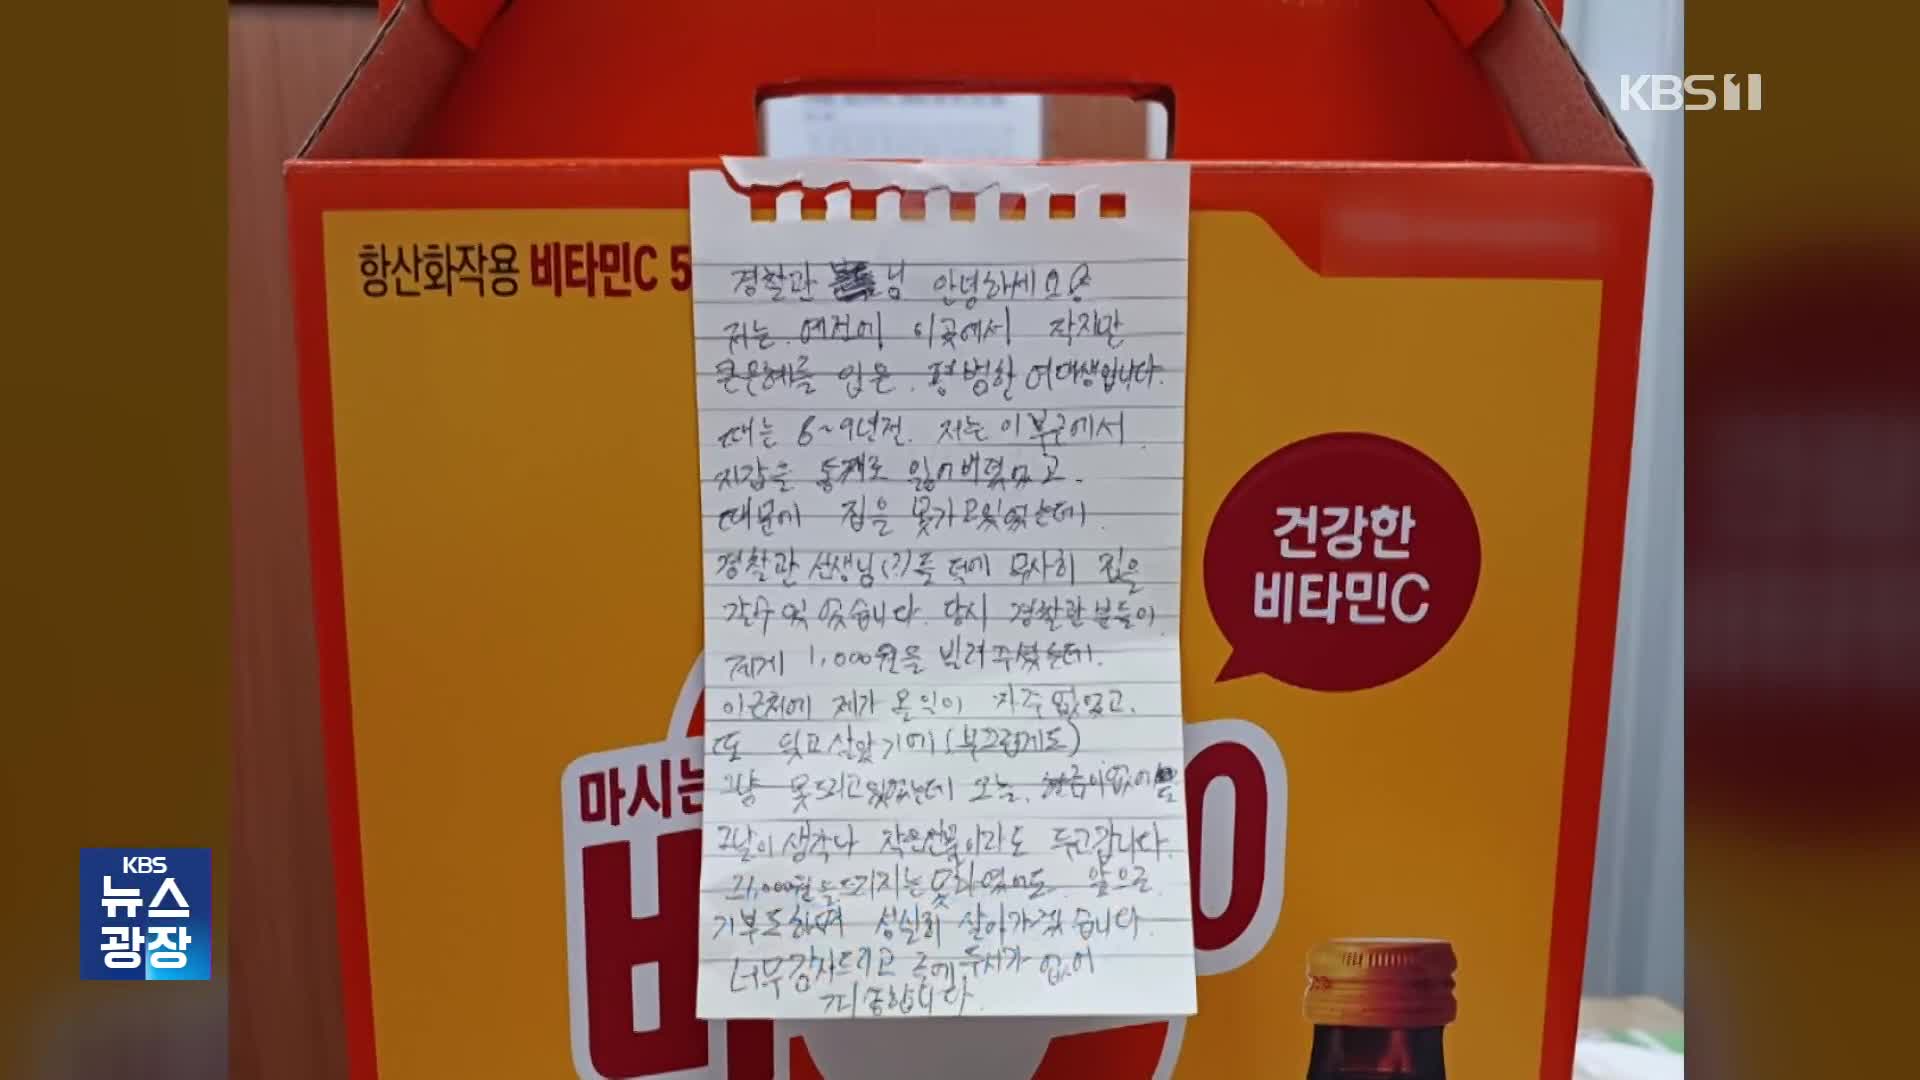 KBS 1
항산화작용 비타민C 5
경찰관 님 안녕하세요
저는 예전에 이곳에서 작지만
큰은혜를 입은 평범한 여대생입니다.
때는 6~9년전. 저는 이 부근에서
지갑을 통째로 잃어버렸었고.
때문에 집을 못가고있었는데.
경찰관 선생님(?)들 덕에 무사히 집을
갈수 있었습니다. 당시 경찰관분들이
제게 1,000원을 빌려주셨는데.
이근처에 제가 올일이 자주 없었고.
또 잊고 살았기에(부끄럽게도)
그냥 못드리고있었는데 오늘.
그날이 생각나 작은선물이라도 두고갑니다.
앞으로
기부도하며 성실히 살아가겠습니다.
너무감사드리고 글에 두서가 없어
죄송합니다.
건강한
비타민C
마시는
비
0
KBS
뉴스
광장